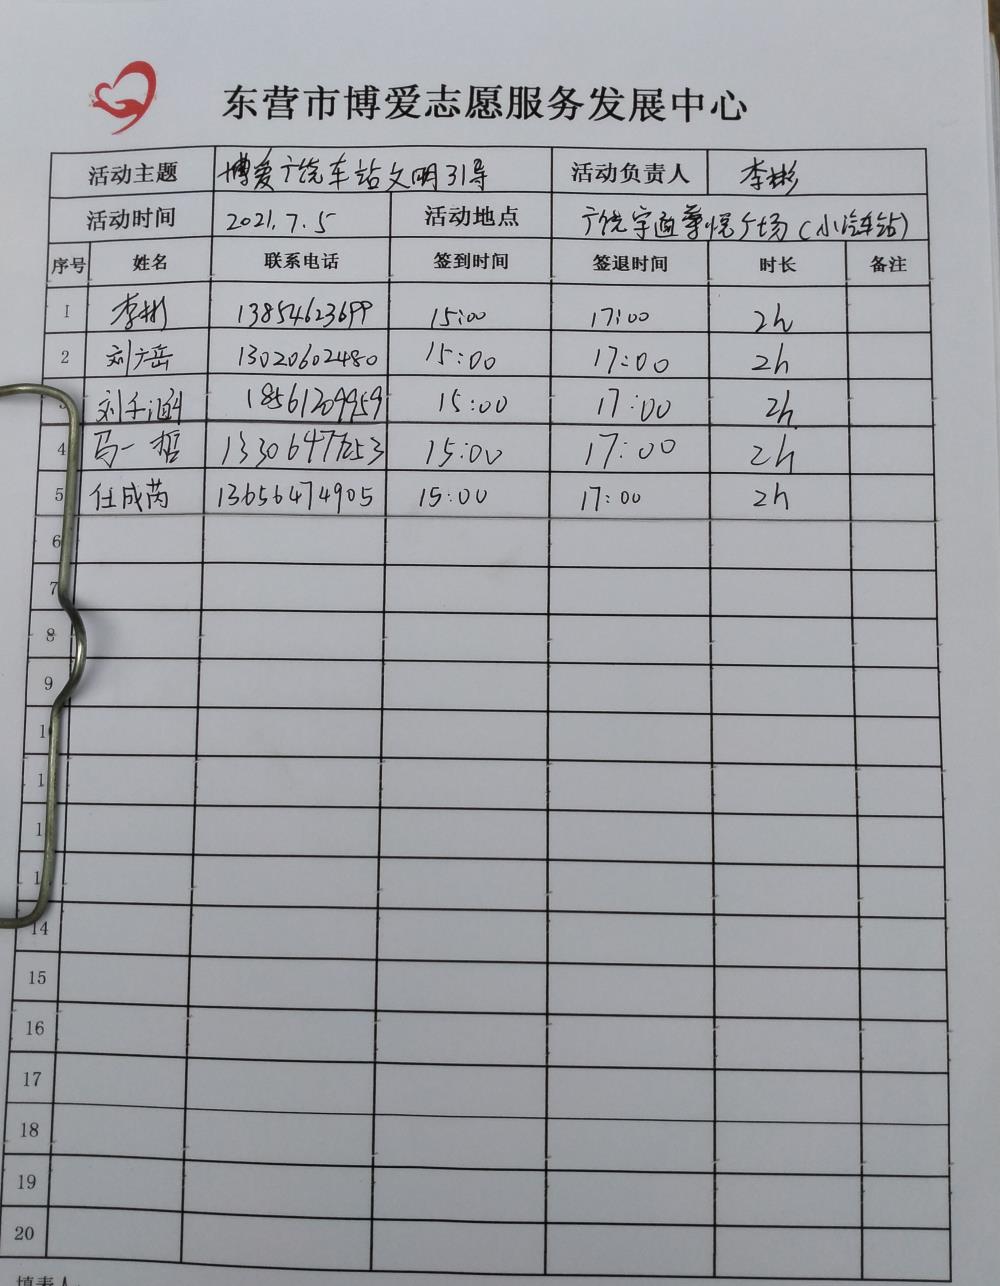 东营市博爱志愿服务发展中心
活动主题 博爱广饶车站文明引导 活动负责人 李彬
活动时间 2021.7.5 活动地点 广饶宇通尊悦广场(小汽车站)
序号 姓名 联系电话 签到时间 签退时间 时长 备注
1 李彬 13854623699 15:00 17:00 2h
2 刘方岳 13020602480 15:00 17:00 2h
3 刘千涵 18561209959 15:00 17:00 2h
4 马一哲 15:00 17:00 2h
5 任成芮 13656474905 15:00 17:00 2h
6
7
8
9
1
1
1
1
14
15
16
17
18
19
20
填表人